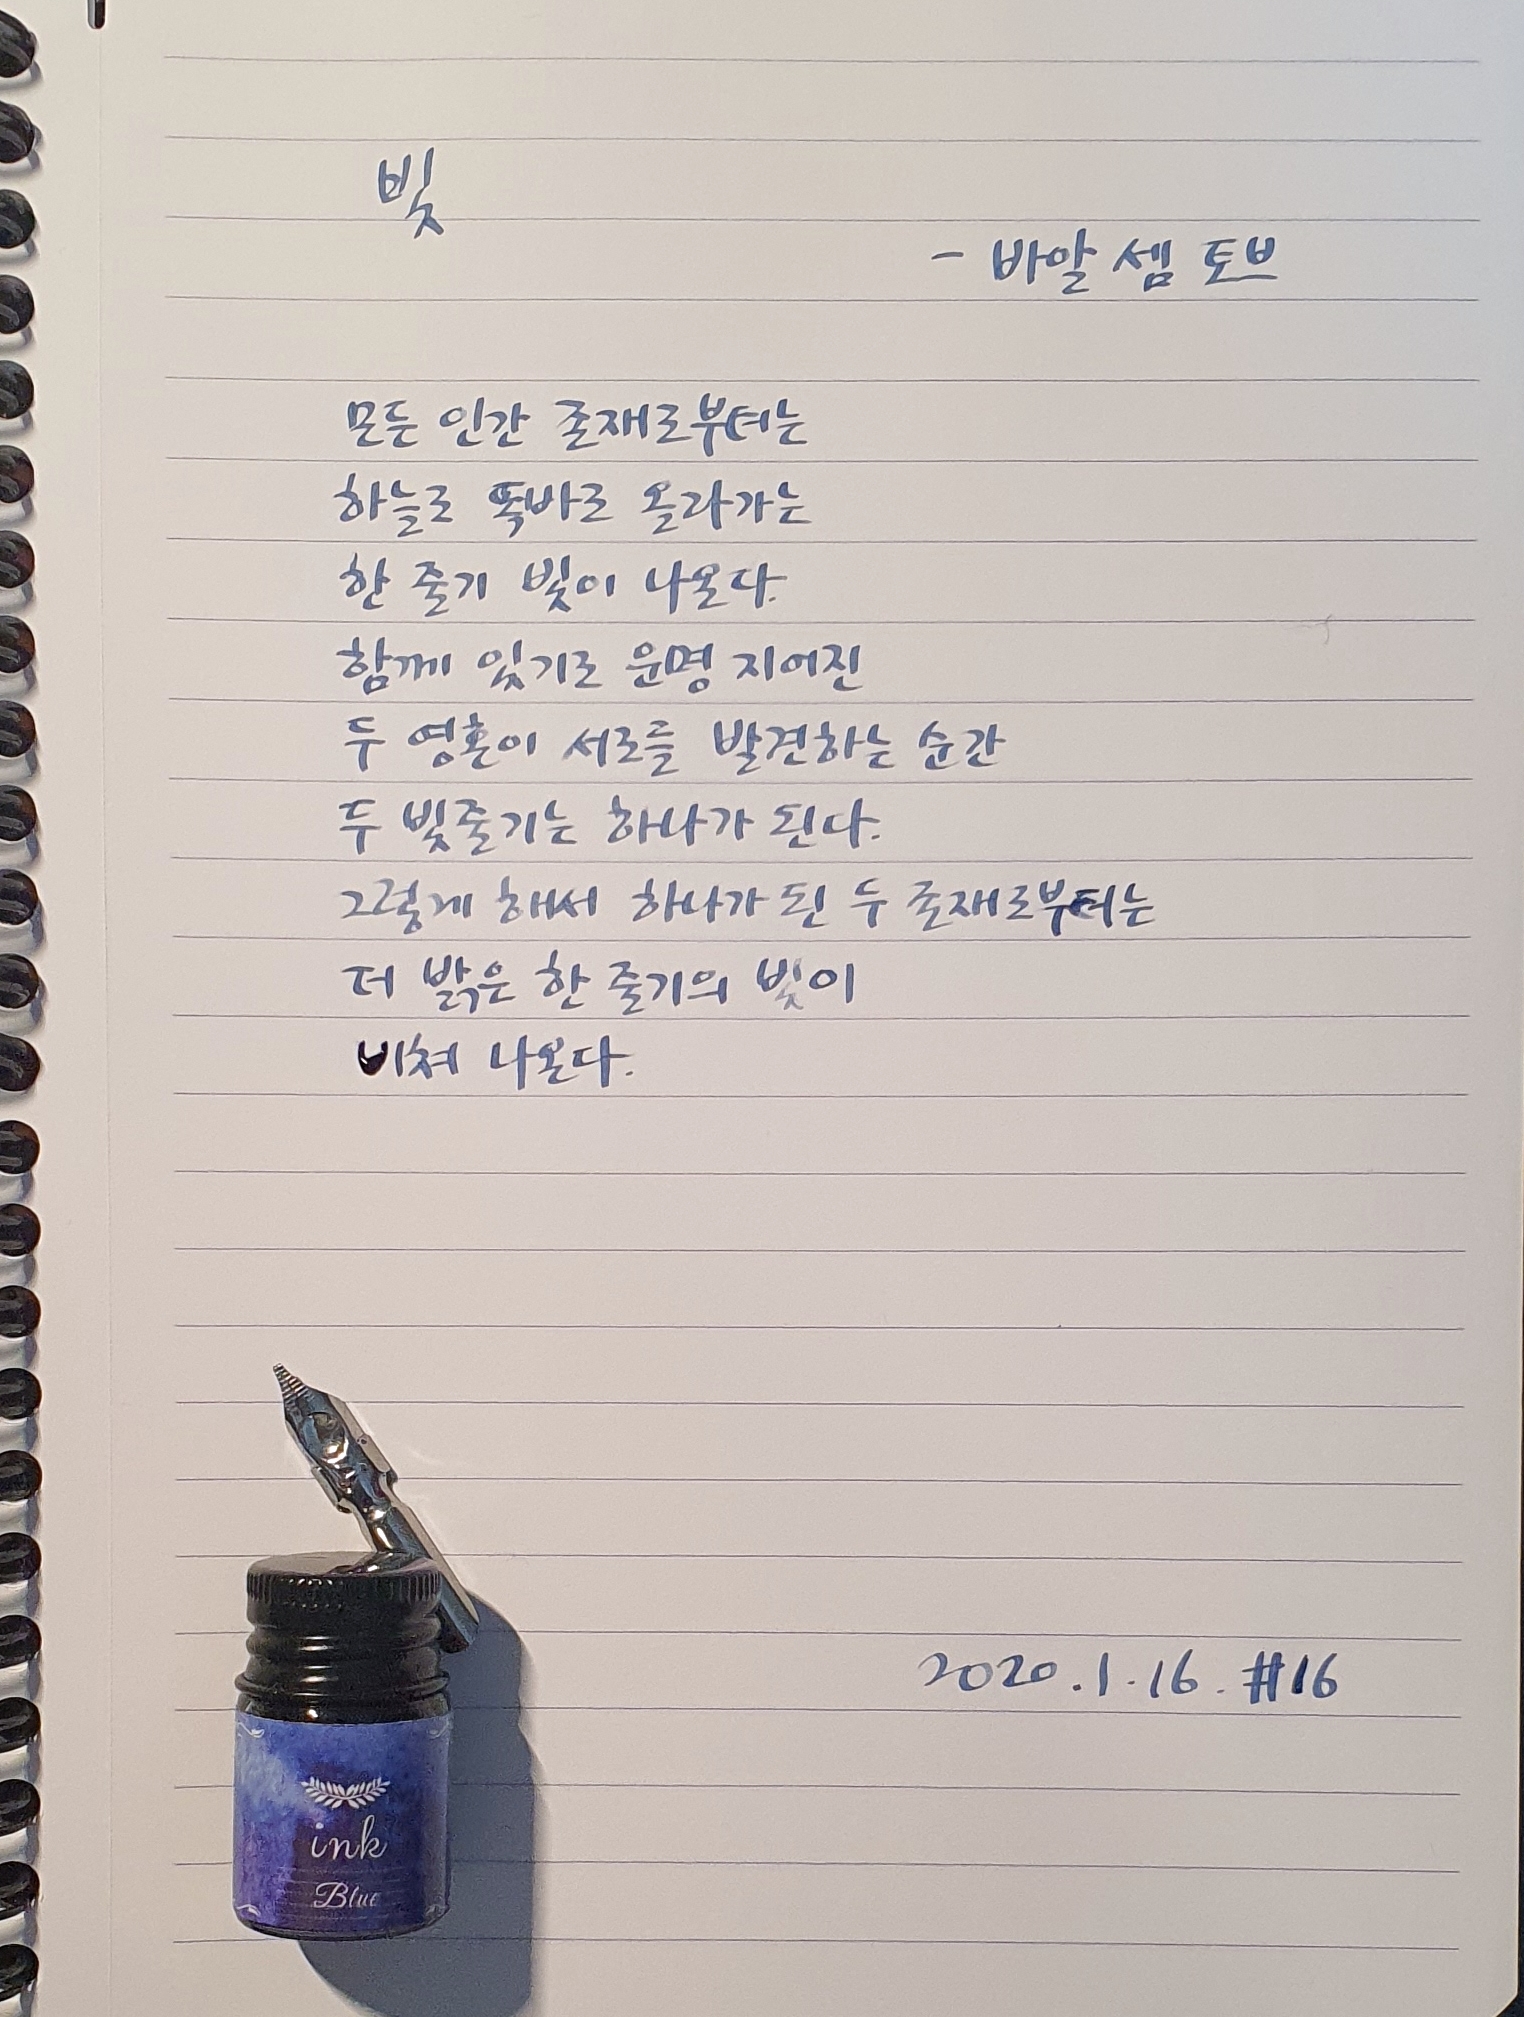 빛
- 바알 셈 토브
모든 인간 존재로부터는
하늘로 똑바로 올라가는
한 줄기 빛이 나온다.
함께 있기로 운명 지어진
두 영혼이 서로를 발견하는 순간
두 빛줄기는 하나가 된다.
그렇게 해서 하나가 된 두 존재로부터는
더 밝은 한 줄기의 빛이
비쳐 나온다.
2020.1.16. #16
ink
Blue